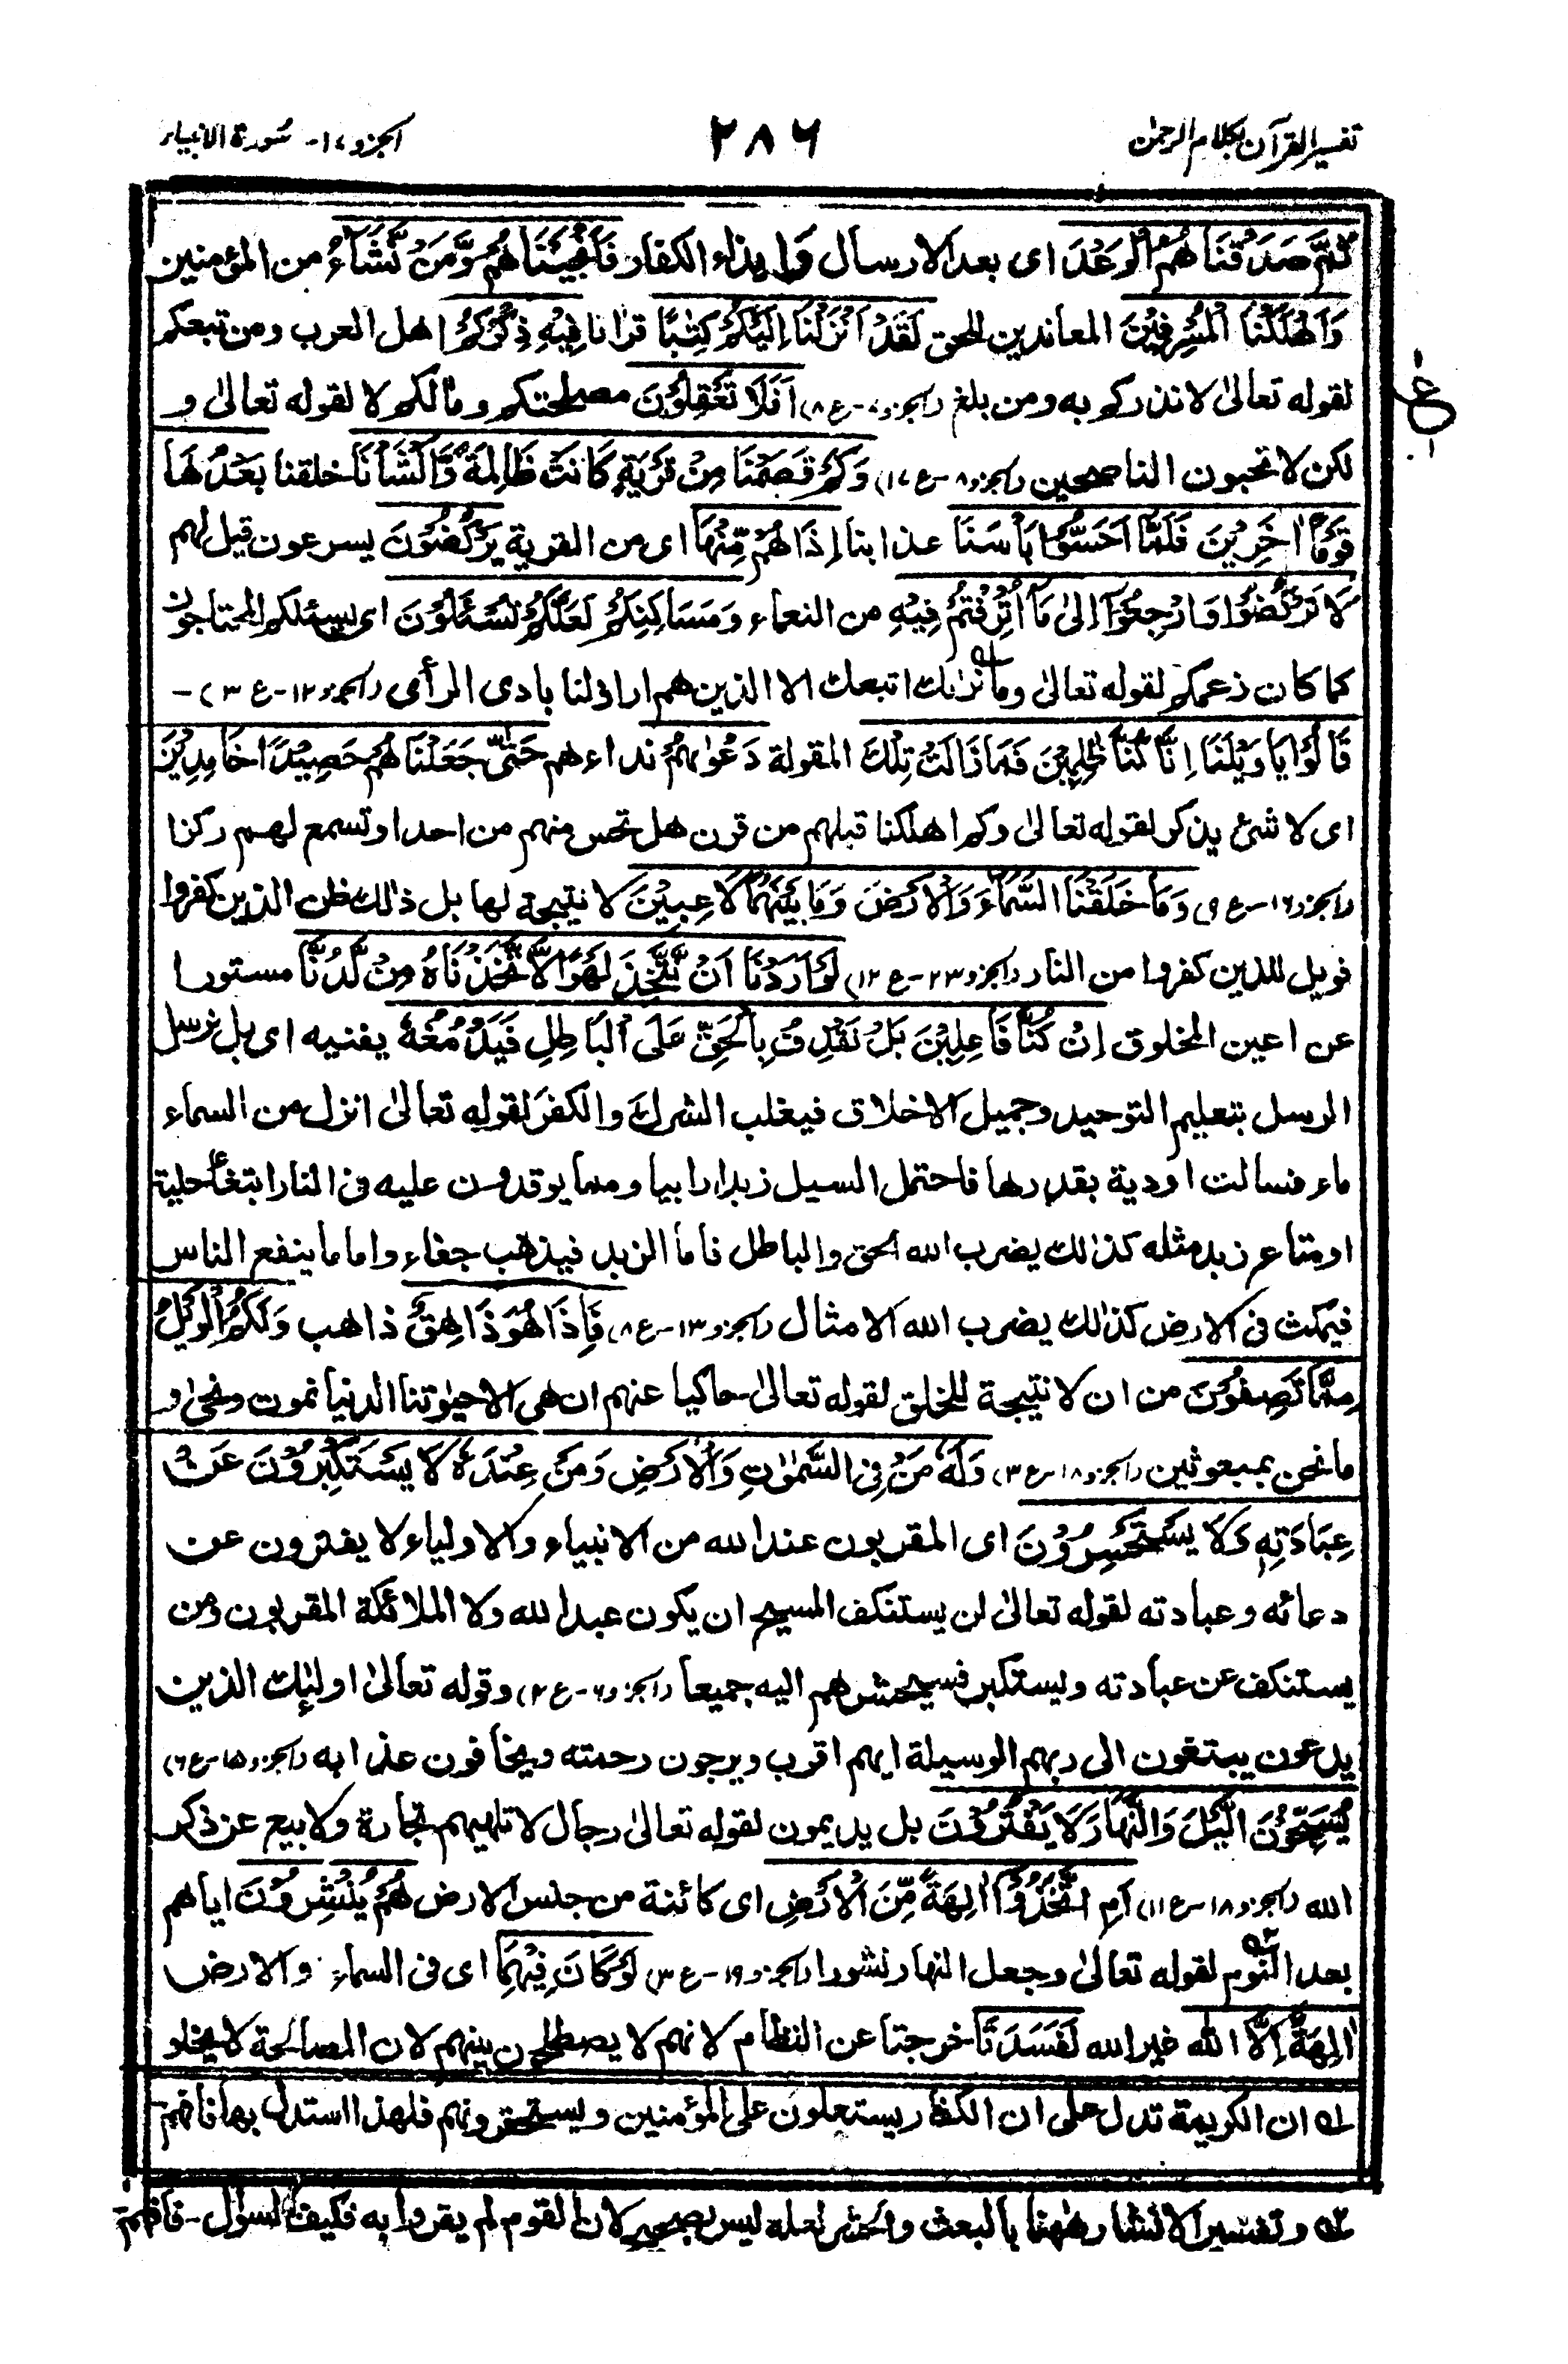 تفسير القرآن بكلام الرحمٰن
٢٨٦
الجزو ١٧- سُورة الانبياء
ثُمَّ صَدَقْنَاهُمُ الْوَعْدَ اى بعد الارسال وايذاء الكفار فَاَنْجَيْنَاهُمْ وَمَنْ نَّشَآءُ من المؤمنين
وَاَهْلَكْنَا الْمُسْرِفِيْنَ المعاندين للحق لَقَدْ اَنْزَلْنَا اِلَيْكُمْ كِتٰبًا قرانا فِيْهِ ذِكْرُكُمْ اهل العرب ومن تبعكم
لقوله تعالىٰ لانذركم به ومن بلغ (الجزو ٧-ع ٨) اَفَلَا تَعْقِلُوْنَ مصلحتكم ومالكم لا لقوله تعالىٰ و
لكن لا تحبون الناصحين (الجزو ٨-ع ١٧) وَكَمْ قَصَمْنَا مِنْ قَرْيَةٍ كَانَتْ ظَالِمَةً وَّاَنْشَأْنَا خلقنا بَعْدَهَا
قَوْمًا اٰخَرِيْنَ فَلَمَّا اَحَسُّوْا بَأْسَنَا عذابنا اِذَا هُمْ مِّنْهَا اى من القرية يَرْكُضُوْنَ يسرعون قيل لهم
لَا تَرْكُضُوْا وَارْجِعُوْا اِلىٰ مَآ اُتْرِفْتُمْ فِيْهِ من النعماء وَمَسَاكِنِكُمْ لَعَلَّكُمْ تُسْئَلُوْنَ اى يسئلكم المحتاجون
كما كان زعمكم لقوله تعالىٰ وما نرٰىك اتبعك الا الذين هم اراذلنا بادى الرأى (الجزو ١٢-ع ٣)-
قَالُوْا يَا وَيْلَنَا اِنَّا كُنَّا ظٰلِمِيْنَ فَمَا زَالَتْ تِلْكَ المقولة دَعْوٰىهُمْ نداءهم حَتّٰى جَعَلْنَاهُمْ حَصِيْدًا خَامِدِيْنَ
اى لا شئ يذكر لقوله تعالىٰ وكم اهلكنا قبلهم من قرن هل تحس منهم من احد او تسمع لهم ركزا
(الجزو ١٦-ع ٩) وَمَا خَلَقْنَا السَّمَآءَ وَالْاَرْضَ وَمَا بَيْنَهُمَا لَاعِبِيْنَ لا نتيجة لها بل ذالك ظن الذين كفروا
فويل للذين كفروا من النار (الجزو ٢٣-ع ١٢) لَوْ اَرَدْنَا اَنْ نَّتَّخِذَ لَهْوًا لَّاتَّخَذْنَاهُ مِنْ لَّدُنَّا مستورا
عن اعين المخلوق اِنْ كُنَّا فَاعِلِيْنَ بَلْ نَقْذِفُ بِالْحَقِّ عَلَى الْبَاطِلِ فَيَدْمَغُهٗ يفنيه اى بل نرسل
الرسل بتعليم التوحيد وجميل الاخلاق فيغلب الشرك والكفر لقوله تعالىٰ انزل من السماء
ماء فسالت اودية بقدرها فاحتمل السيل زبدا رابيا ومما يوقدون عليه فى النار ابتغاء حلية
او متاع زبد مثله كذالك يضرب الله الحق والباطل فاما الزبد فيذهب جفاء واما ما ينفع الناس
فيمكث فى الارض كذالك يضرب الله الامثال (الجزو ١٣-ع ٨) فَاِذَا هُوَ ذَاهِقٌ ذاهب وَلَكُمُ الْوَيْلُ
مِمَّا تَصِفُوْنَ من ان لا نتيجة للخلق لقوله تعالىٰ حاكيا عنهم ان هى الا حيٰوتنا الدنيا نموت ونحيٰ و
ما نحن بمبعوثين (الجزو ١٨-ع ٣) وَلَهٗ مَنْ فِى السَّمٰوٰتِ وَالْاَرْضِ وَمَنْ عِنْدَهٗ لَا يَسْتَكْبِرُوْنَ عَنْ
عِبَادَتِهٖ وَلَا يَسْتَحْسِرُوْنَ اى المقربون عند الله من الانبياء والاولياء لا يفترون عن
دعائه وعبادته لقوله تعالىٰ لن يستنكف المسيح ان يكون عبدا لله ولا الملائكة المقربون ومن
يستنكف عن عبادته ويستكبر فسيحشرهم اليه جميعا (الجزو ٦-ع ٤) وقوله تعالىٰ اولئك الذين
يدعون يبتغون الى ربهم الوسيلة ايهم اقرب ويرجون رحمته ويخافون عذابه (الجزو ١٥-ع ٦)
يُسَبِّحُوْنَ الَّيْلَ وَالنَّهَارَ لَا يَفْتُرُوْنَ بل يديمون لقوله تعالىٰ رجال لا تلهيهم تجارة ولا بيع عن ذكر
الله (الجزو ١٨-ع ١١) اَمِ اتَّخَذُوْٓا اٰلِهَةً مِّنَ الْاَرْضِ اى كائنة من جنس الارض هُمْ يُنْشِرُوْنَ اياهم
بعد النوم لقوله تعالىٰ وجعل النهار نشورا (الجزو ١٩-ع ٣) لَوْ كَانَ فِيْهِمَا اى فى السماء والارض
اٰلِهَةٌ اِلَّا اللّٰهُ غير الله لَفَسَدَتَا خرجتا عن النظام لانهم لا يصطلحون بينهم لان المصالحة لا يخلو
له ان الكريمة تدل على ان الكفار يستعلون على المؤمنين ويستحقرونهم فلهذا استدل بها فافهم
ته وتفسير الانشار هٰهنا بالبعث والحشر لعله ليس بصحيح لان القوم لم يقروا به فكيف السوال- فافهم